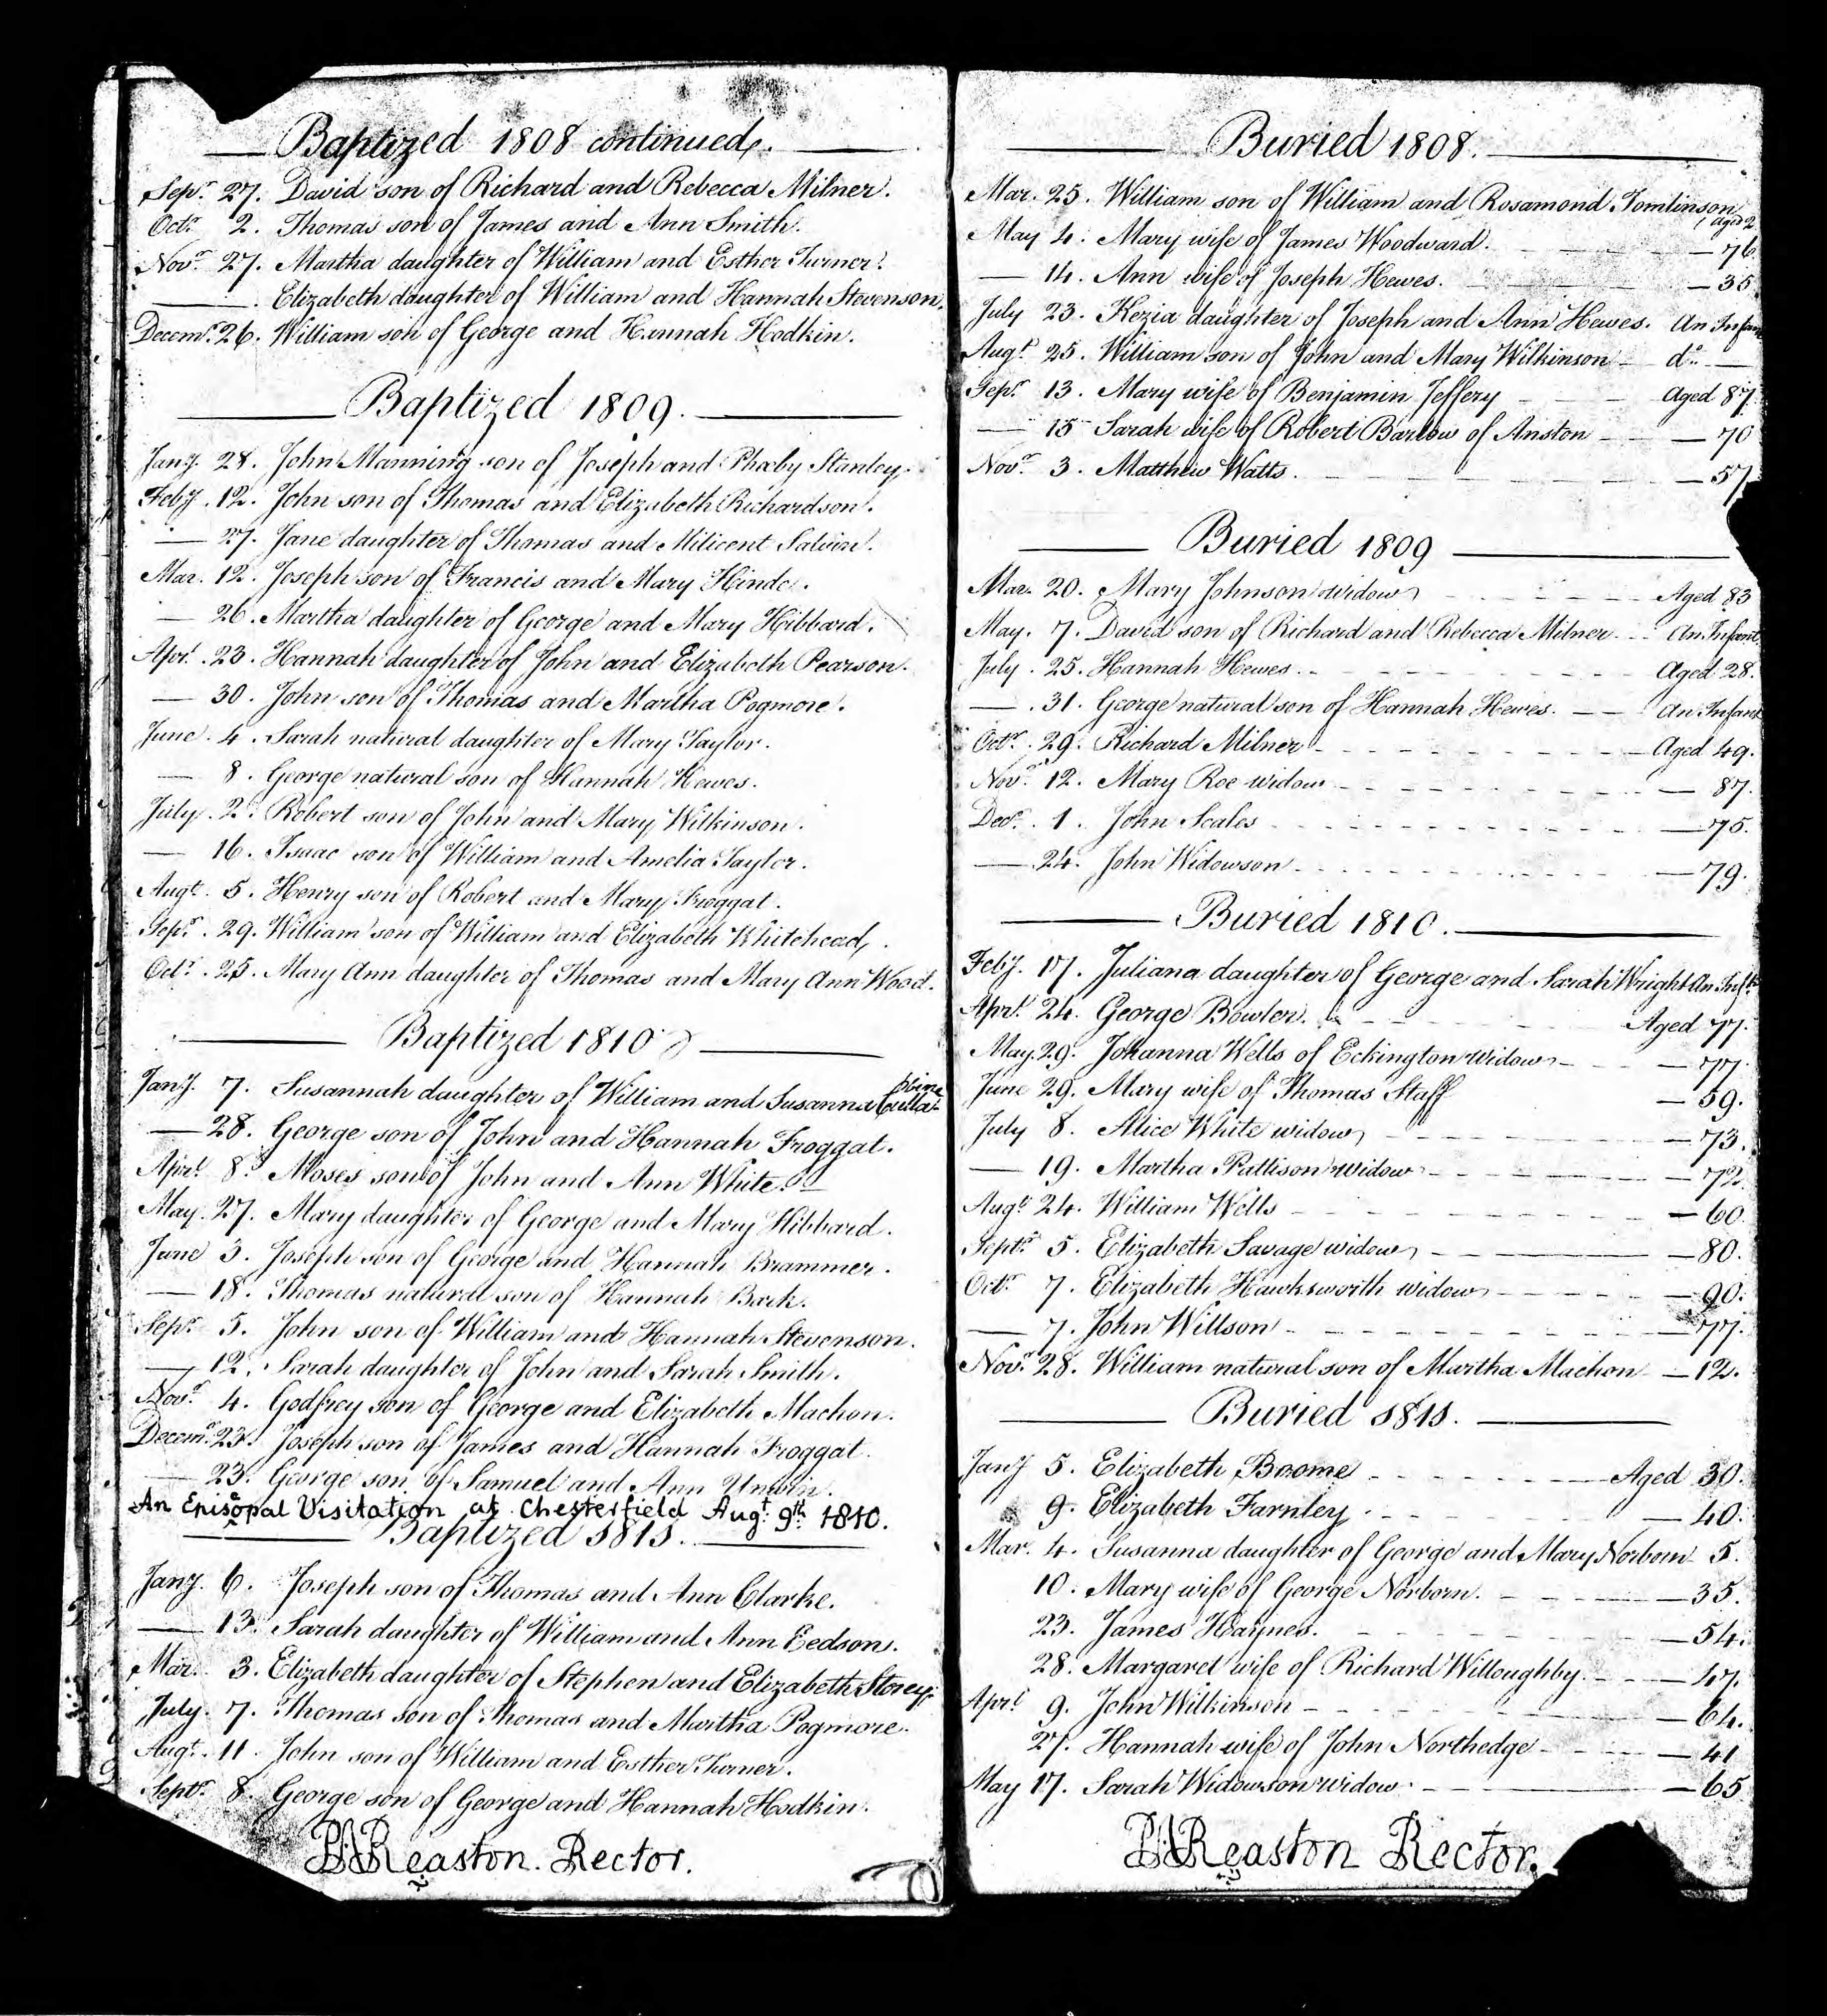 Baptized 1808 continued.
Sepr. 27. David son of Richard and Rebecca Milner.
Octr. 2. Thomas son of James and Ann Smith.
Novr. 27. Martha daughter of William and Esther Turner.
— . Elizabeth daughter of William and Hannah Stevenson.
Decemr. 26. William son of George and Hannah Hodkin.
Baptized 1809.
Jany. 28. John Manning son of Joseph and Phœby Stanley.
Feby. 12. John son of Thomas and Elizabeth Richardson.
— 27. Jane daughter of Thomas and Milicent Salvin.
Mar. 12. Joseph son of Francis and Mary Hinde.
— 26. Martha daughter of George and Mary Hibbard.
Aprl. 23. Hannah daughter of John and Elizabeth Pearson.
— 30. John son of Thomas and Martha Pogmore.
June 4. Sarah natural daughter of Mary Taylor.
— 8. George natural son of Hannah Hewes.
July 2. Robert son of John and Mary Wilkinson.
— 16. Isaac son of William and Amelia Taylor.
Augt. 5. Henry son of Robert and Mary Froggat.
Sepr. 29. William son of William and Elizabeth Whitehead.
Octr. 25. Mary Ann daughter of Thomas and Mary Ann Wood.
Baptized 1810
Jany. 7. Susannah daughter of William and Susanna
— 28. George son of John and Hannah Froggat.
Aprl. 8. Moses son of John and Ann White.
May. 27. Mary daughter of George and Mary Hibbard.
June 3. Joseph son of George and Hannah Brammer.
— 18. Thomas natural son of Hannah Bark.
Sepr. 5. John son of William and Hannah Stevenson.
— 12. Sarah daughter of John and Sarah Smith.
Novr. 4. Godfrey son of George and Elizabeth Machon.
Decemr. 23. Joseph son of James and Hannah Froggat.
— 23. George son of Samuel and Ann Unwin.
An Episcopal Visitation at Chesterfield Augt. 9th. 1810.
Baptized 1811.
Jany. 6. Joseph son of Thomas and Ann Clarke.
— 13. Sarah daughter of William and Ann Eedson.
Mar. 3. Elizabeth daughter of Stephen and Elizabeth Storey.
July. 7. Thomas son of Thomas and Martha Pogmore.
Augt. 11. John son of William and Esther Turner.
Septr. 8. George son of George and Hannah Hodkin.
Reaston. Rector.
Buried 1808.
Mar. 25. William son of William and Rosamond Tomlinson aged 2
May 4. Mary wife of James Woodward. — 76
— 14. Ann wife of Joseph Hewes. — 35.
July 23. Kezia daughter of Joseph and Ann Hewes. An Infan
Augt. 25. William son of John and Mary Wilkinson — do. —
Sepr. 13. Mary wife of Benjamin Jeffery — Aged 87
— 15 Sarah wife of Robert Barlow of Anston — 70
Novr. 3. Matthew Watts. — 57
Buried 1809
Mar. 20. Mary Johnson widow — Aged 83
May. 7. David son of Richard and Rebecca Milner — An Infant
July. 25. Hannah Hewes. — Aged 28.
— 31. George natural son of Hannah Hewes. — An Infant
Octr. 29. Richard Milner — Aged 49.
Novr. 12. Mary Roe widow — 87.
Decr. 1. John Scales — 75.
— 24. John Widowson — 79.
Buried 1810.
Feby. 17. Juliana daughter of George and Sarah Wright An Inft.
Aprl. 24. George Bowler. Aged 77.
May. 29. Johanna Wells of Eckington widow — 77.
June 29. Mary wife of Thomas Staff — 59.
July 8. Alice White widow — 73.
— 19. Martha Pattison widow — 72
Augt. 24. William Wells — 60.
Septr. 5. Elizabeth Savage widow — 80.
Octr. 7. Elizabeth Hawksworth widow — 90.
— 7. John Willson — 77.
Novr. 28. William natural son of Martha Machon — 12.
Buried 1811.
Jany 5. Elizabeth Broome — Aged 30.
9. Elizabeth Farnley — 40.
Mar. 4. Susanna daughter of George and Mary Norborn 5.
10. Mary wife of George Norborn. — 35.
23. James Haynes. — 54.
28. Margaret wife of Richard Willoughby. — 47.
Aprl. 9. John Wilkinson — 64.
27. Hannah wife of John Northedge — 41
May 17. Sarah Widowson widow. — 65
Reaston Rector.